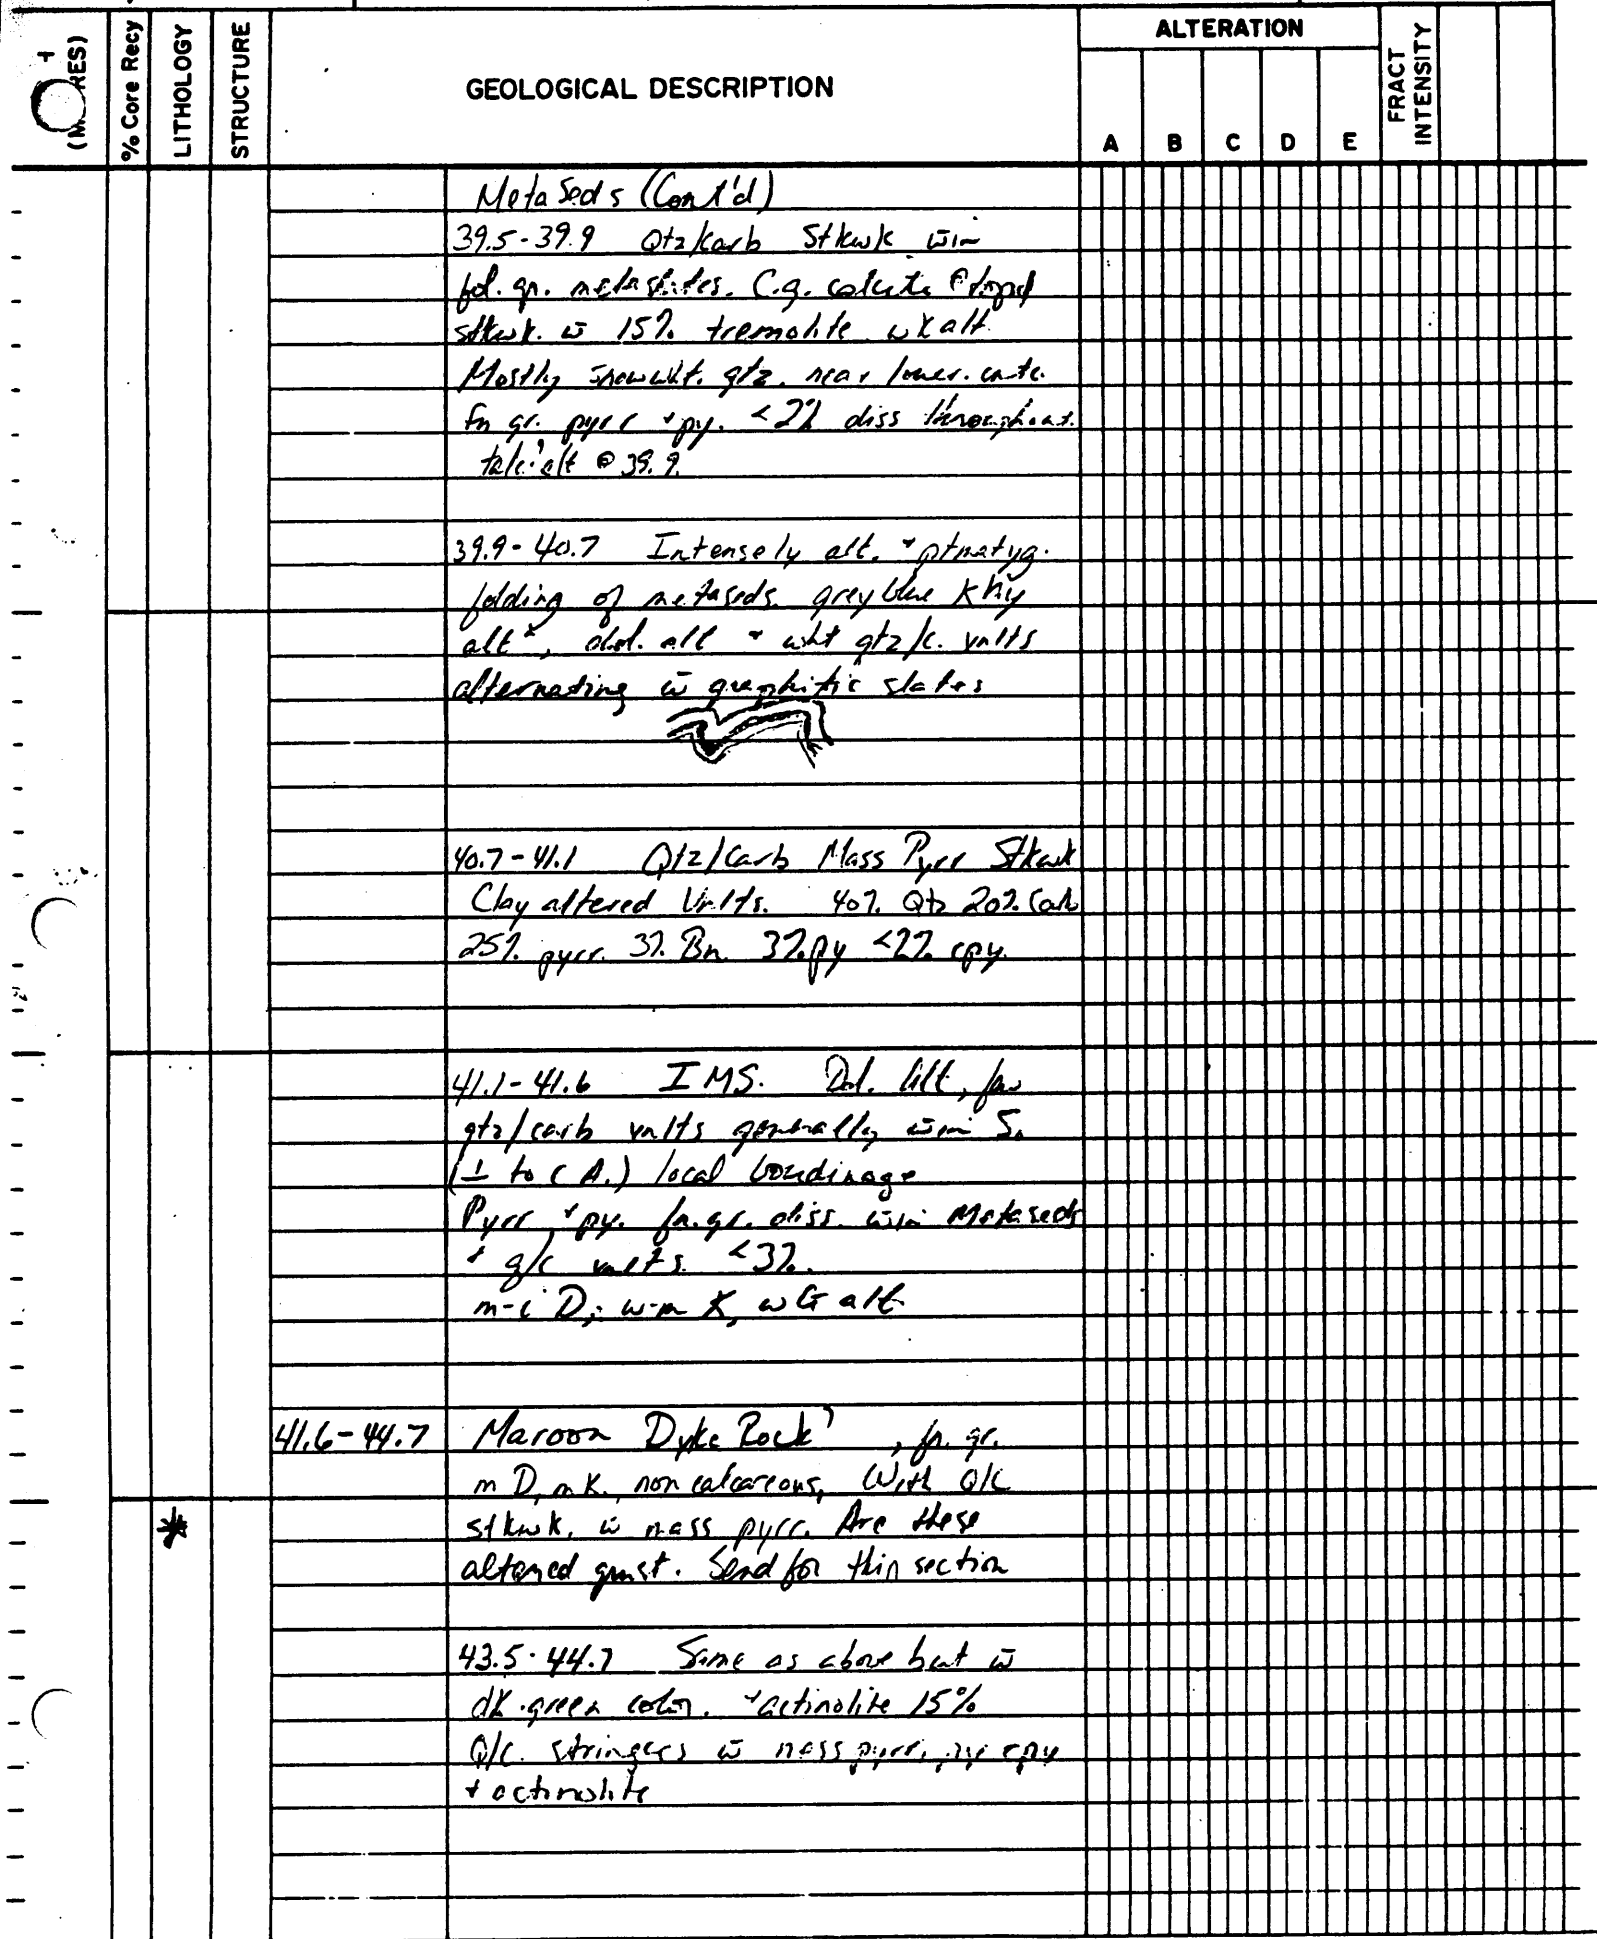 (METRES)
% Core Recy
LITHOLOGY
STRUCTURE
GEOLOGICAL DESCRIPTION
ALTERATION
A B C D E
FRACT INTENSITY
Meta Seds (Cont'd)
39.5-39.9 Qtz/carb Stkwk w̄in
fol. gr. metaslates. C.g. calcite
stkwk. w̄ 15% tremolite wk alt.
Mostly snow wht. qtz. near lower. cntc.
fn gr. pyrr + py. <2% diss throughout.
talc? alt @ 39.9.
39.9-40.7 Intensely alt. + ptmatyg.
folding of metaseds. grey blue Khy
alt, dol. alt + wht qtz/c. vnlts
alternating w̄ graphitic slates
40.7-41.1 Qtz/Carb Mass Pyrr Stkwk
Clay altered Vnlts. 40% Qtz 20% Carb
25% pyrr. 3% Bn. 3% py <2% cpy.
41.1-41.6 IMS. Dol. Alt, few
qtz/carb vnlts generally w̄in So
(⊥ to C.A.) local boudinage
Pyrr + py. fn.gr. diss. w̄in Metaseds
+ q/c vnlts. <3%.
m-i D, w-m K, w G alt.
41.6-44.7 Maroon Dyke Rock? , fn. gr.
m D, m K., non calcareous, With Q/C
* stkwk, w̄ mass pyrr. Are these
altered gnst. Send for thin section
43.5-44.7 Same as above but w̄
dk.green color. + actinolite 15%
Q/C. stringers w̄ mass pyrr, py cpy
+ actinolite